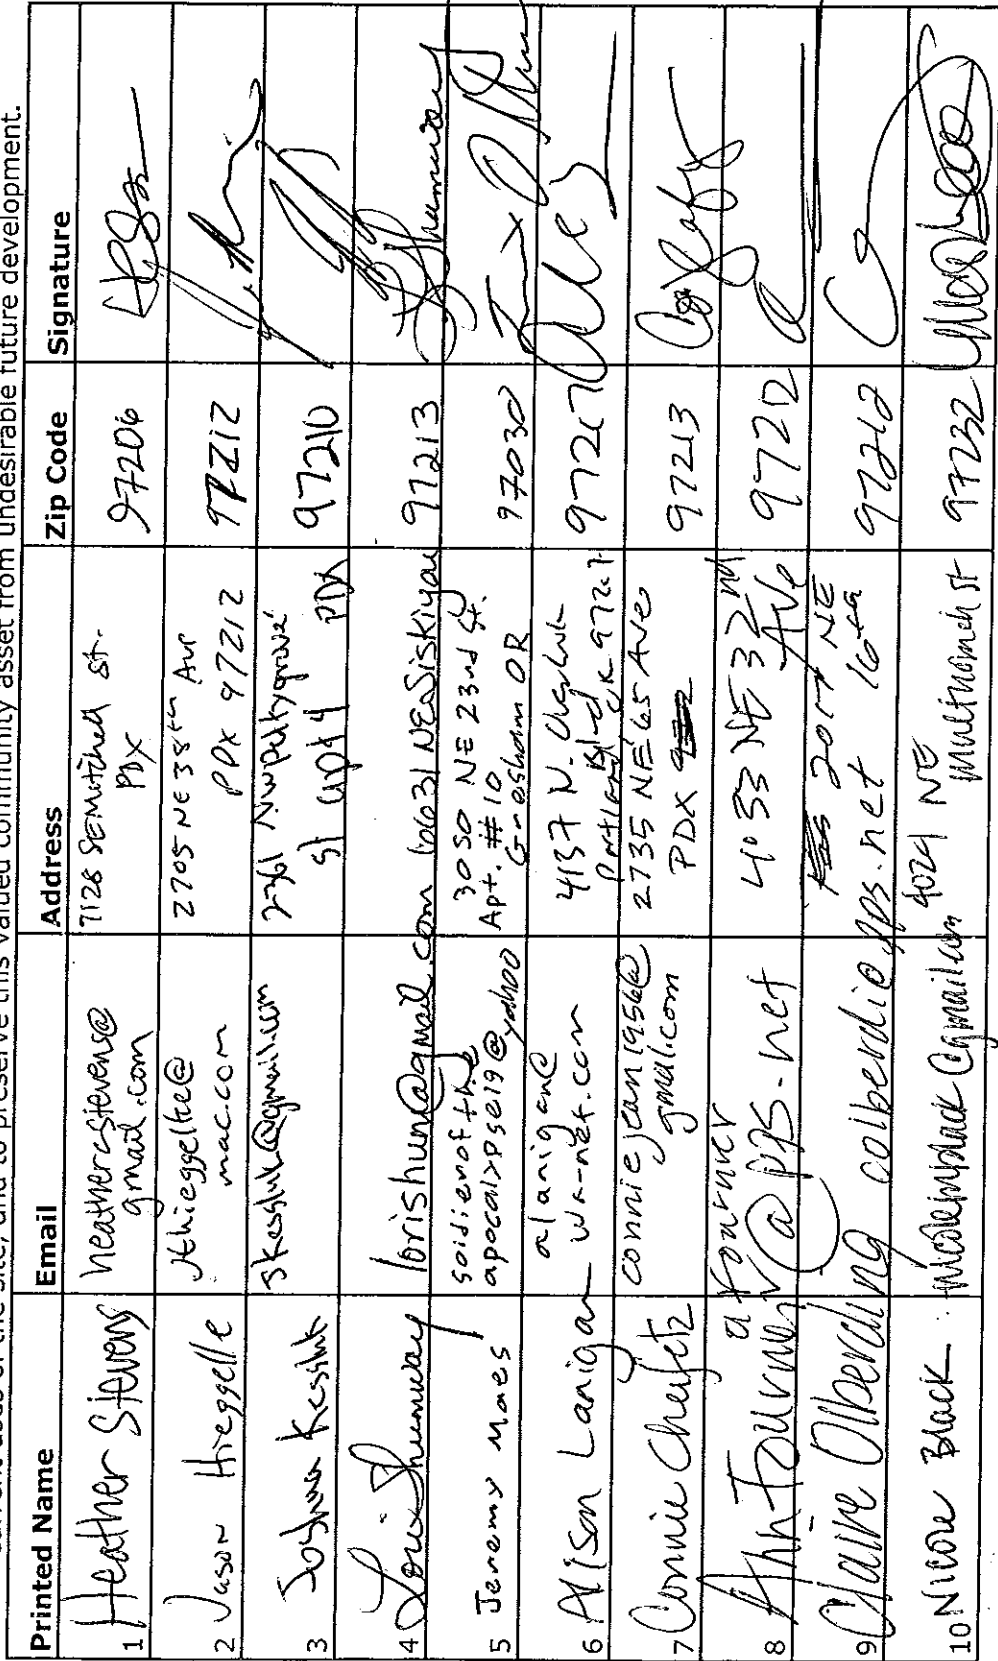 current uses of the site, and to preserve this valued community asset from undesirable future development.
Printed Name Email Address Zip Code Signature
1 Heather Stevens heathercstevens@ gmail.com 7128 SE Mitchell St. PDX 97206
2 Jason Hieggelke Jthieggelke@ mac.com 2705 NE 38th Ave PDX 97212 97212
3 Joshua Kessluk skessluk@gmail.com 2361 NW pettygrove St apt 4 PDX 97210
4 Lori Shumway lorishum@gmail.com 6631 NE Siskiyou 97213
5 Jeremy Maes soldierofthe apocalypse19@yahoo 3050 NE 23rd St. Apt. #10 Gresham OR 97030
6 Alison Lanigan alanigan@ wa-net.com 4137 N. Portland Blvd 97267
7 Connie Cheifetz conniejean1956@ gmail.com 2735 NE 65 Ave PDX 97213
8 Ann Tourner @pps.net 4033 NE 32nd Ave 97212
9 Claire Olberding colberdi@pps.net 2017 NE 16th 97212
10 Nicole Black nicolemblack@gmail.com 4024 NE Multnomah St 97232